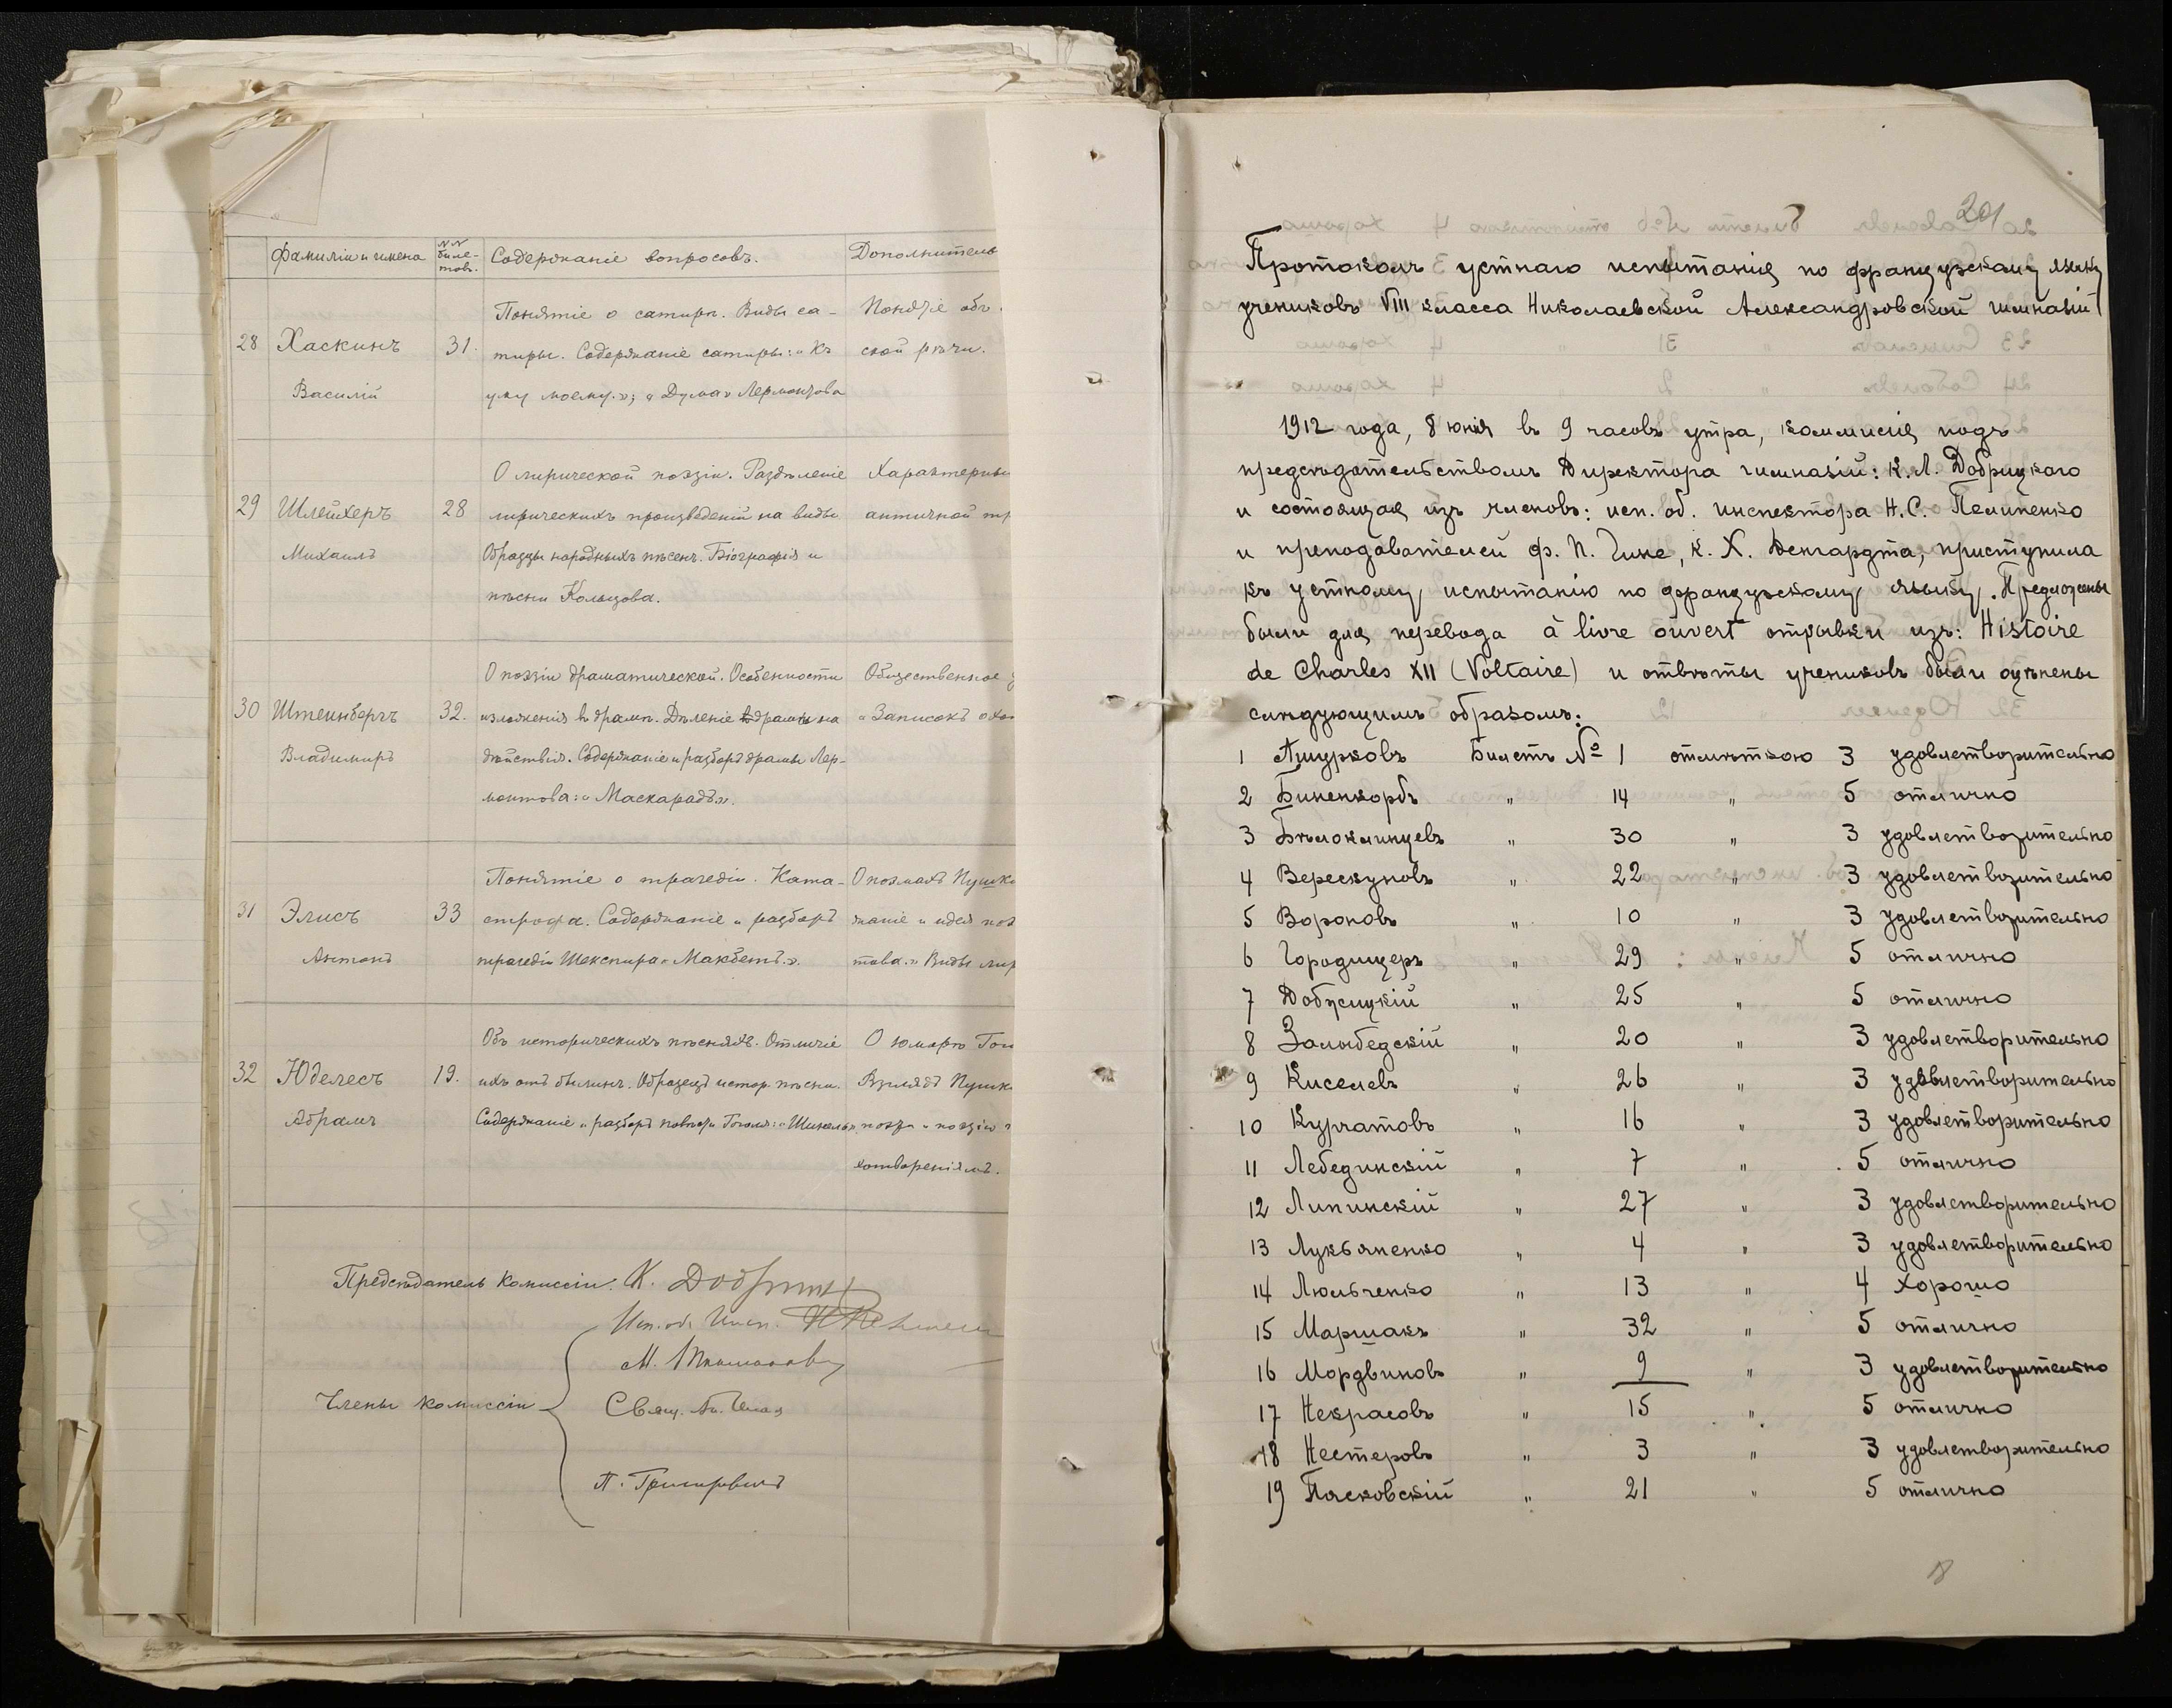 Фамиліи и имена
№№ биле-
товъ.
Содержаніе вопросовъ.
Дополнитель
28 Хаскинъ
Василій
31.
Понятіе о сатирѣ. Виды са-
тиры. Содержаніе сатиры: „Къ
уму моему.“; „Дума“ Лермонтова
Понятіе объ
ской рѣчи.
29 Шлейхеръ
Михаилъ
28
О лирической поэзіи. Раздѣленіе
лирическихъ произведеній на виды
Образцы народныхъ пѣсенъ. Біографія и
пѣсни Кольцова.
Характерны
античной тр
30 Штейнбергъ
Владимиръ
32.
О поэзіи драматической. Особенности
изложенія въ драмѣ. Дѣленіе драмы на
дѣйствія. Содержаніе и разборъ драмы Лер-
монтова: „Маскарадъ“.
Общественное з
„Записокъ охо
31 Элисъ
Антонъ
33
Понятіе о трагедіи. Ката-
строфа. Содержаніе и разборъ
трагедіи Шекспира „Макбетъ.“
О поэмахъ Пушк
жаніе и идея поэ
това. „Виды лир
32 Юделесъ
Абрамъ
19.
Объ историческихъ пѣсняхъ. Отличіе
ихъ отъ былинъ. Образецъ истор. пѣсни.
Содержаніе и разборъ повѣсти Гоголя: „Шинель“
О юморѣ Гог
Взглядъ Пушк
поэта и поэзію
хотвореніямъ.
Предсѣдатель Комиссіи: К. Добр
Исп. об. Инсп.
Члены Комиссіи
Свящ.
П. Григоровичъ
201
Протоколъ устнаго испытанія по французскому языку
учениковъ VIII класса Николаевской Александровской гимназіи
1912 года, 8 юнія въ 9 часовъ утра, коммисія подъ
предсѣдательствомъ Директора гимназіи: К. Л. Добрицкаго
и состоящая изъ членовъ: исп. об. инспектора Н. С. Пелипенко
и преподавателей Ф. П. Гине, К. Х. Денгардта, приступила
къ устному испытанію по французскому языку. Предложены
были для перевода à livre ouvert отрывки изъ: Histoire
de Charles XII (Voltaire) и отвѣты учениковъ были оцѣнены
слѣдующимъ образомъ:
1 Ашурковъ Билетъ № 1 отмѣткою 3 удовлетворительно
2 Биненкорбъ „ 14 „ 5 отлично
3 Бѣлоклинцевъ „ 30 „ 3 удовлетворительно
4 Верескуновъ „ 22 „ 3 удовлетворительно
5 Вороновъ „ 10 „ 3 удовлетворительно
6 Городищеръ „ 29 „ 5 отлично
7 Добрицкій „ 25 „ 5 отлично
8 Залыбедскій „ 20 „ 3 удовлетворительно
9 Киселевъ „ 26 „ 3 удовлетворительно
10 Курчатовъ „ 16 „ 3 удовлетворительно
11 Лебединскій „ 7 „ 5 отлично
12 Липинскій „ 27 „ 3 удовлетворительно
13 Лукьяненко „ 4 „ 3 удовлетворительно
14 Люльченко „ 13 „ 4 хорошо
15 Маршакъ „ 32 „ 5 отлично
16 Мордвиновъ „ 9 „ 3 удовлетворительно
17 Некрасовъ „ 15 „ 5 отлично
18 Нестеровъ „ 3 „ 3 удовлетворительно
19 Пясковскій „ 21 „ 5 отлично